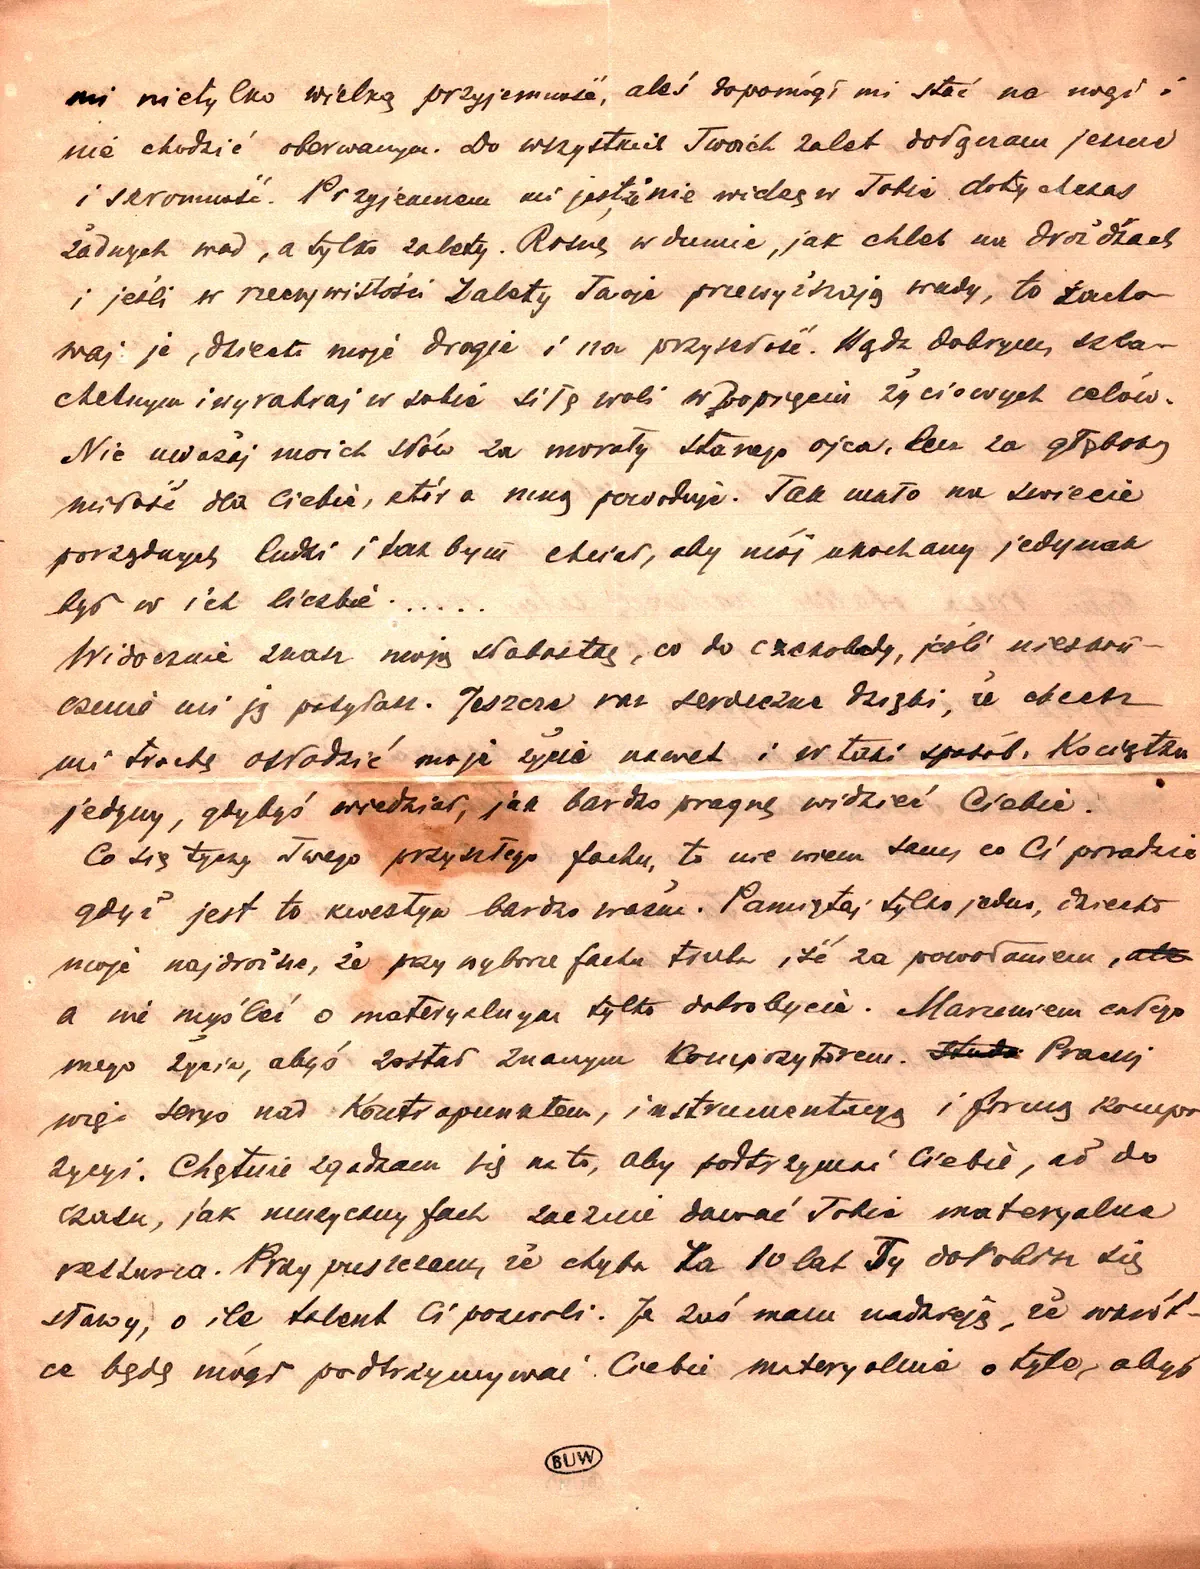 mi nietylko wielką przyjemność, aleś dopomógł mi stać na nogi i
nie chodzić oberwanym. Do wszystkich Twoich zalet dołączam jeszcze
i skromność. Przyjemnem mi jest, że nie widzę w Tobie dotychczas
żadnych wad, a tylko zalety. Rosnę w dumie, jak chleb na drożdżach
i jeśli w rzeczywistości zalety Twoje przewyższają wady, to zacho-
waj je, dziecko moje drogie i na przyszłość. Bądź dobrym, szla-
chetnym i wyrabiaj w sobie siłę woli w dopięciu życiowych celów.
Nie uważaj moich słów za morały starego ojca, lecz za głęboką
miłość dla Ciebie, która mną powoduje. Tak mało na świecie
porządnych ludzi i tak bym chciał, aby mój ukochany jedynak
był w ich liczbie . . . . . .
Widocznie znasz moją słabostkę, co do czekolady, jeśli nieskoń-
czenie mi ją posyłasz. Jeszcze raz serdeczne dzięki, że chcesz
mi trochę osłodzić moje życie nawet i w taki sposób. Kociątko
jedyny, gdybyś wiedział, jak bardzo pragnę widzieć Ciebie.
Co się tyczy Twego przyszłego fachu, to nie wiem sam, co Ci poradzić
gdyż jest to kwestya bardzo ważna. Pamiętaj tylko jedno, dziecko
moje najdroższe, że przy wyborze fachu trzeba iść za powołaniem, ale
a nie myśleć o materyalnym tylko dobrobycie. Marzeniem całego
mego życia, abyś został znanym kompozytorem. Stude Pracuj
więc seryo nad kontrapunktem, instrumentacyą i formą kompo
zycyi. Chętnie zgadzam się na to, aby podtrzymać Ciebie, aż do
czasu, jak muzyczny fach zacznie dawać Tobie materyalne
Przypuszczam, że chyba za 10 lat Ty dorobisz się
sławy, o ile talent Ci pozwoli. Ja zaś mam nadzieję, że wkrót-
ce będę mógł podtrzymywać Ciebie materyalnie o tyle, abyś
BUW